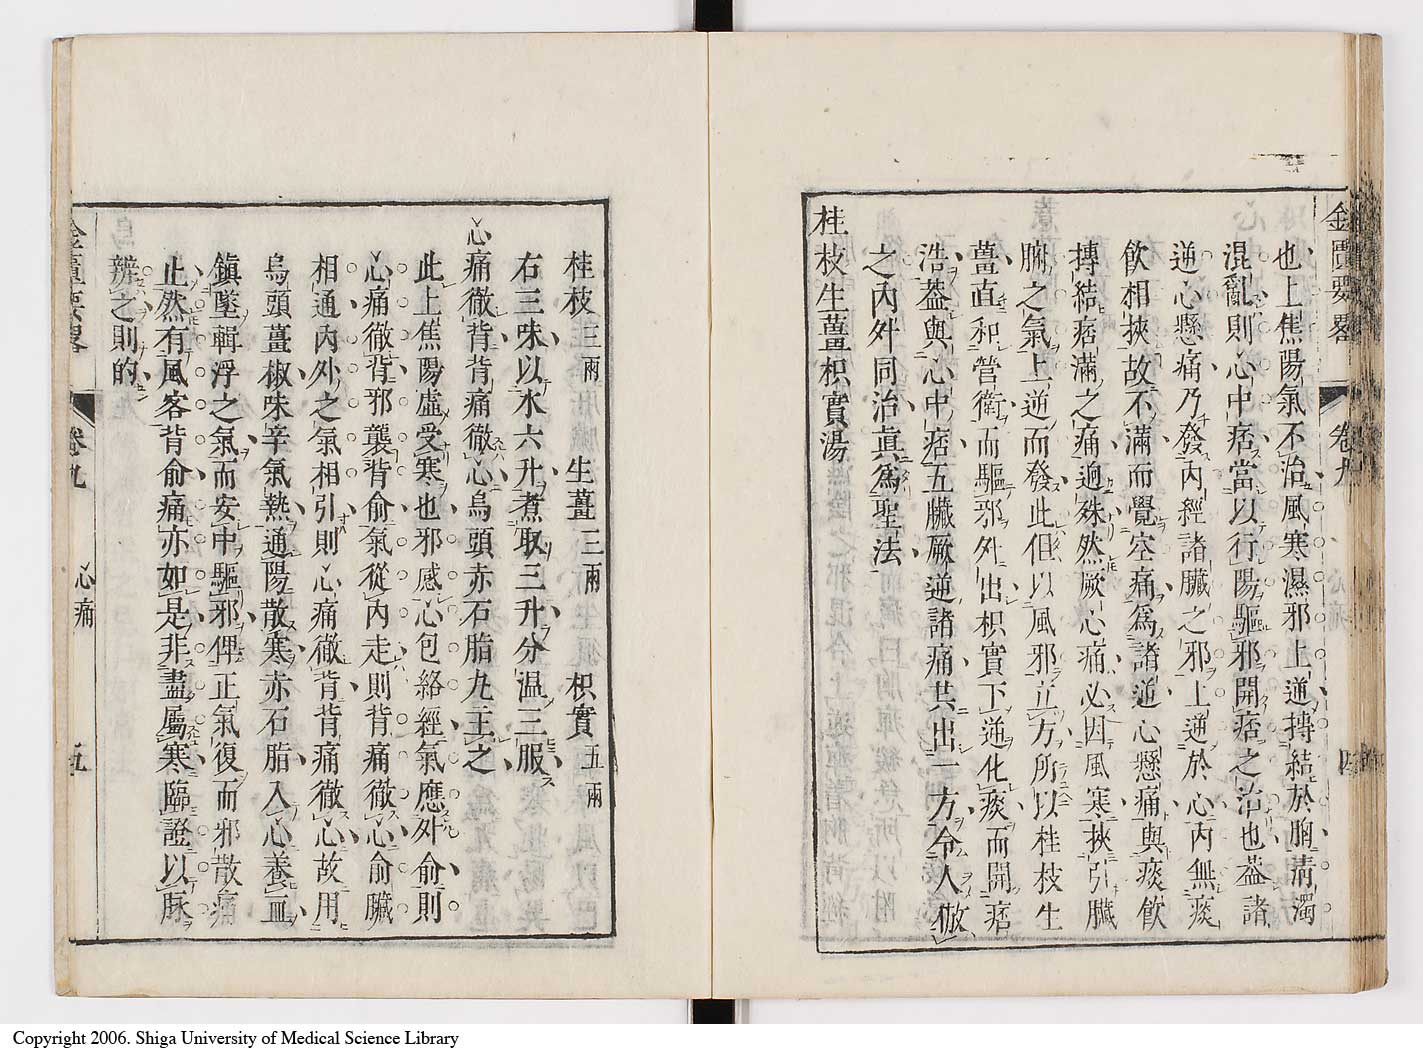 金匱要畧 卷九 四
也上焦陽氣不治風寒濕邪上逆摶結於胸清濁
混亂則心中痞當以行陽驅邪開痞之治也蓋諸
逆心懸痛乃發內經諸臟之邪上逆於心內無痰
飲相挾故不滿而覺空痛爲諸逆心懸痛與痰飲
摶結痞滿之痛迥殊然厥心痛必因風寒挾引臟
腑之氣上逆而發此但以風邪立方所以桂枝生
薑直和營衛而驅邪外出枳實下逆化痰而開痞
浩蓋與心中痞五臟厥逆諸痛共出一方令人倣
之內外同治眞爲聖法
桂枝生薑枳實湯
桂枝三兩 生薑三兩 枳實五兩
右三味以水六升煮取三升分温三服
心痛徹背背痛徹心烏頭赤石脂丸主之
此上焦陽虛受寒也邪感心包絡經氣應外俞則
心痛徹背邪襲背俞氣從內走則背痛徹心俞臟
相通內外之氣相引則心痛徹背背痛徹心故用
烏頭薑椒味辛氣熱通陽散寒赤石脂入心養血
鎮墜輯浮之氣而安中驅邪俾正氣復而邪散痛
止然有風客背俞痛亦如是非盡屬寒臨證以脉
辨之則的
金匱要畧 卷九 心痛 五
Copyright 2006. Shiga University of Medical Science Library